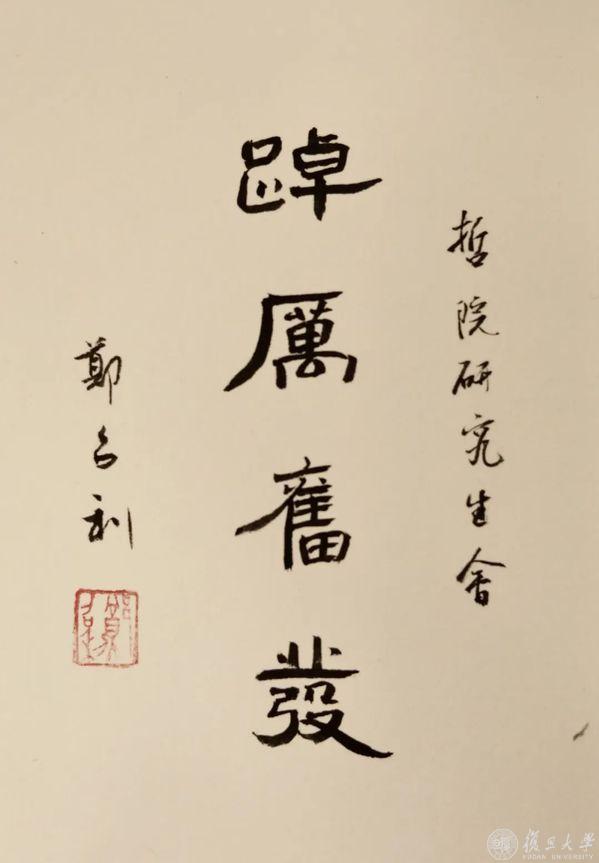 哲院研究生會
踔厲奮發
鄭召利
復旦大學
FUDAN UNIVERSITY